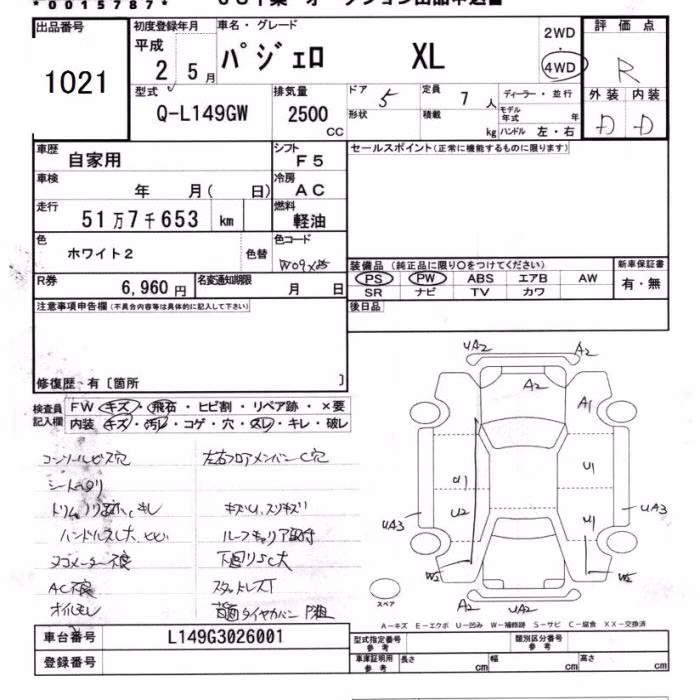 *0015787*
出品番号 初度登録年月 車名・グレード 2WD 評価点
1021 平成 2 5月 パジェロ XL 4WD R
型式 Q-L149GW 排気量 2500 CC ドア 5 定員 7人 ディーラー・並行 外装 内装
形状 積載 kg モデル年式 年 ハンドル 左・右 D D
車歴 自家用 シフト F5 セールスポイント(正常に機能するものに限ります)
車検 年 月( 日) 冷房 AC
走行 51万7千653 km 燃料 軽油
色 ホワイト2 色替 色コード W09
装備品 (純正品に限り○をつけてください) 新車保証書
PS PW ABS エアB AW 有・無
SR ナビ TV カワ
R券 6,960円 名変通知期限 月 日
注意事項申告欄(不具合内容等は具体的に記入して下さい) 後日品
修復歴・有〔箇所 〕
検査員記入欄 FW キズ・飛石・ヒビ割・リペア跡・×要
内装・キズ・汚レ・コゲ・穴・スレ・キレ・破レ
コンソールビス穴 左右フロアメンバーC穴
シートヘタリ
ハンドルスレ大 ルーフキャリア取付
タコメーター不良 下回りSC大
AC不良 スタッドレスT
オイルモレ 背面タイヤカバー
UA2 A2
A2 A1
U1 U1
U2 U1
UA3 UA3
W5
スペア A2 UA2
A-キズ E-エクボ U-凹み W-補修跡 S-サビ C-腐食 XX-交換済
車台番号 L149G3026001 型式指定番号 参考 類別区分番号 参考
登録番号 車庫証明用 参考 長さ cm 幅 cm 高さ cm